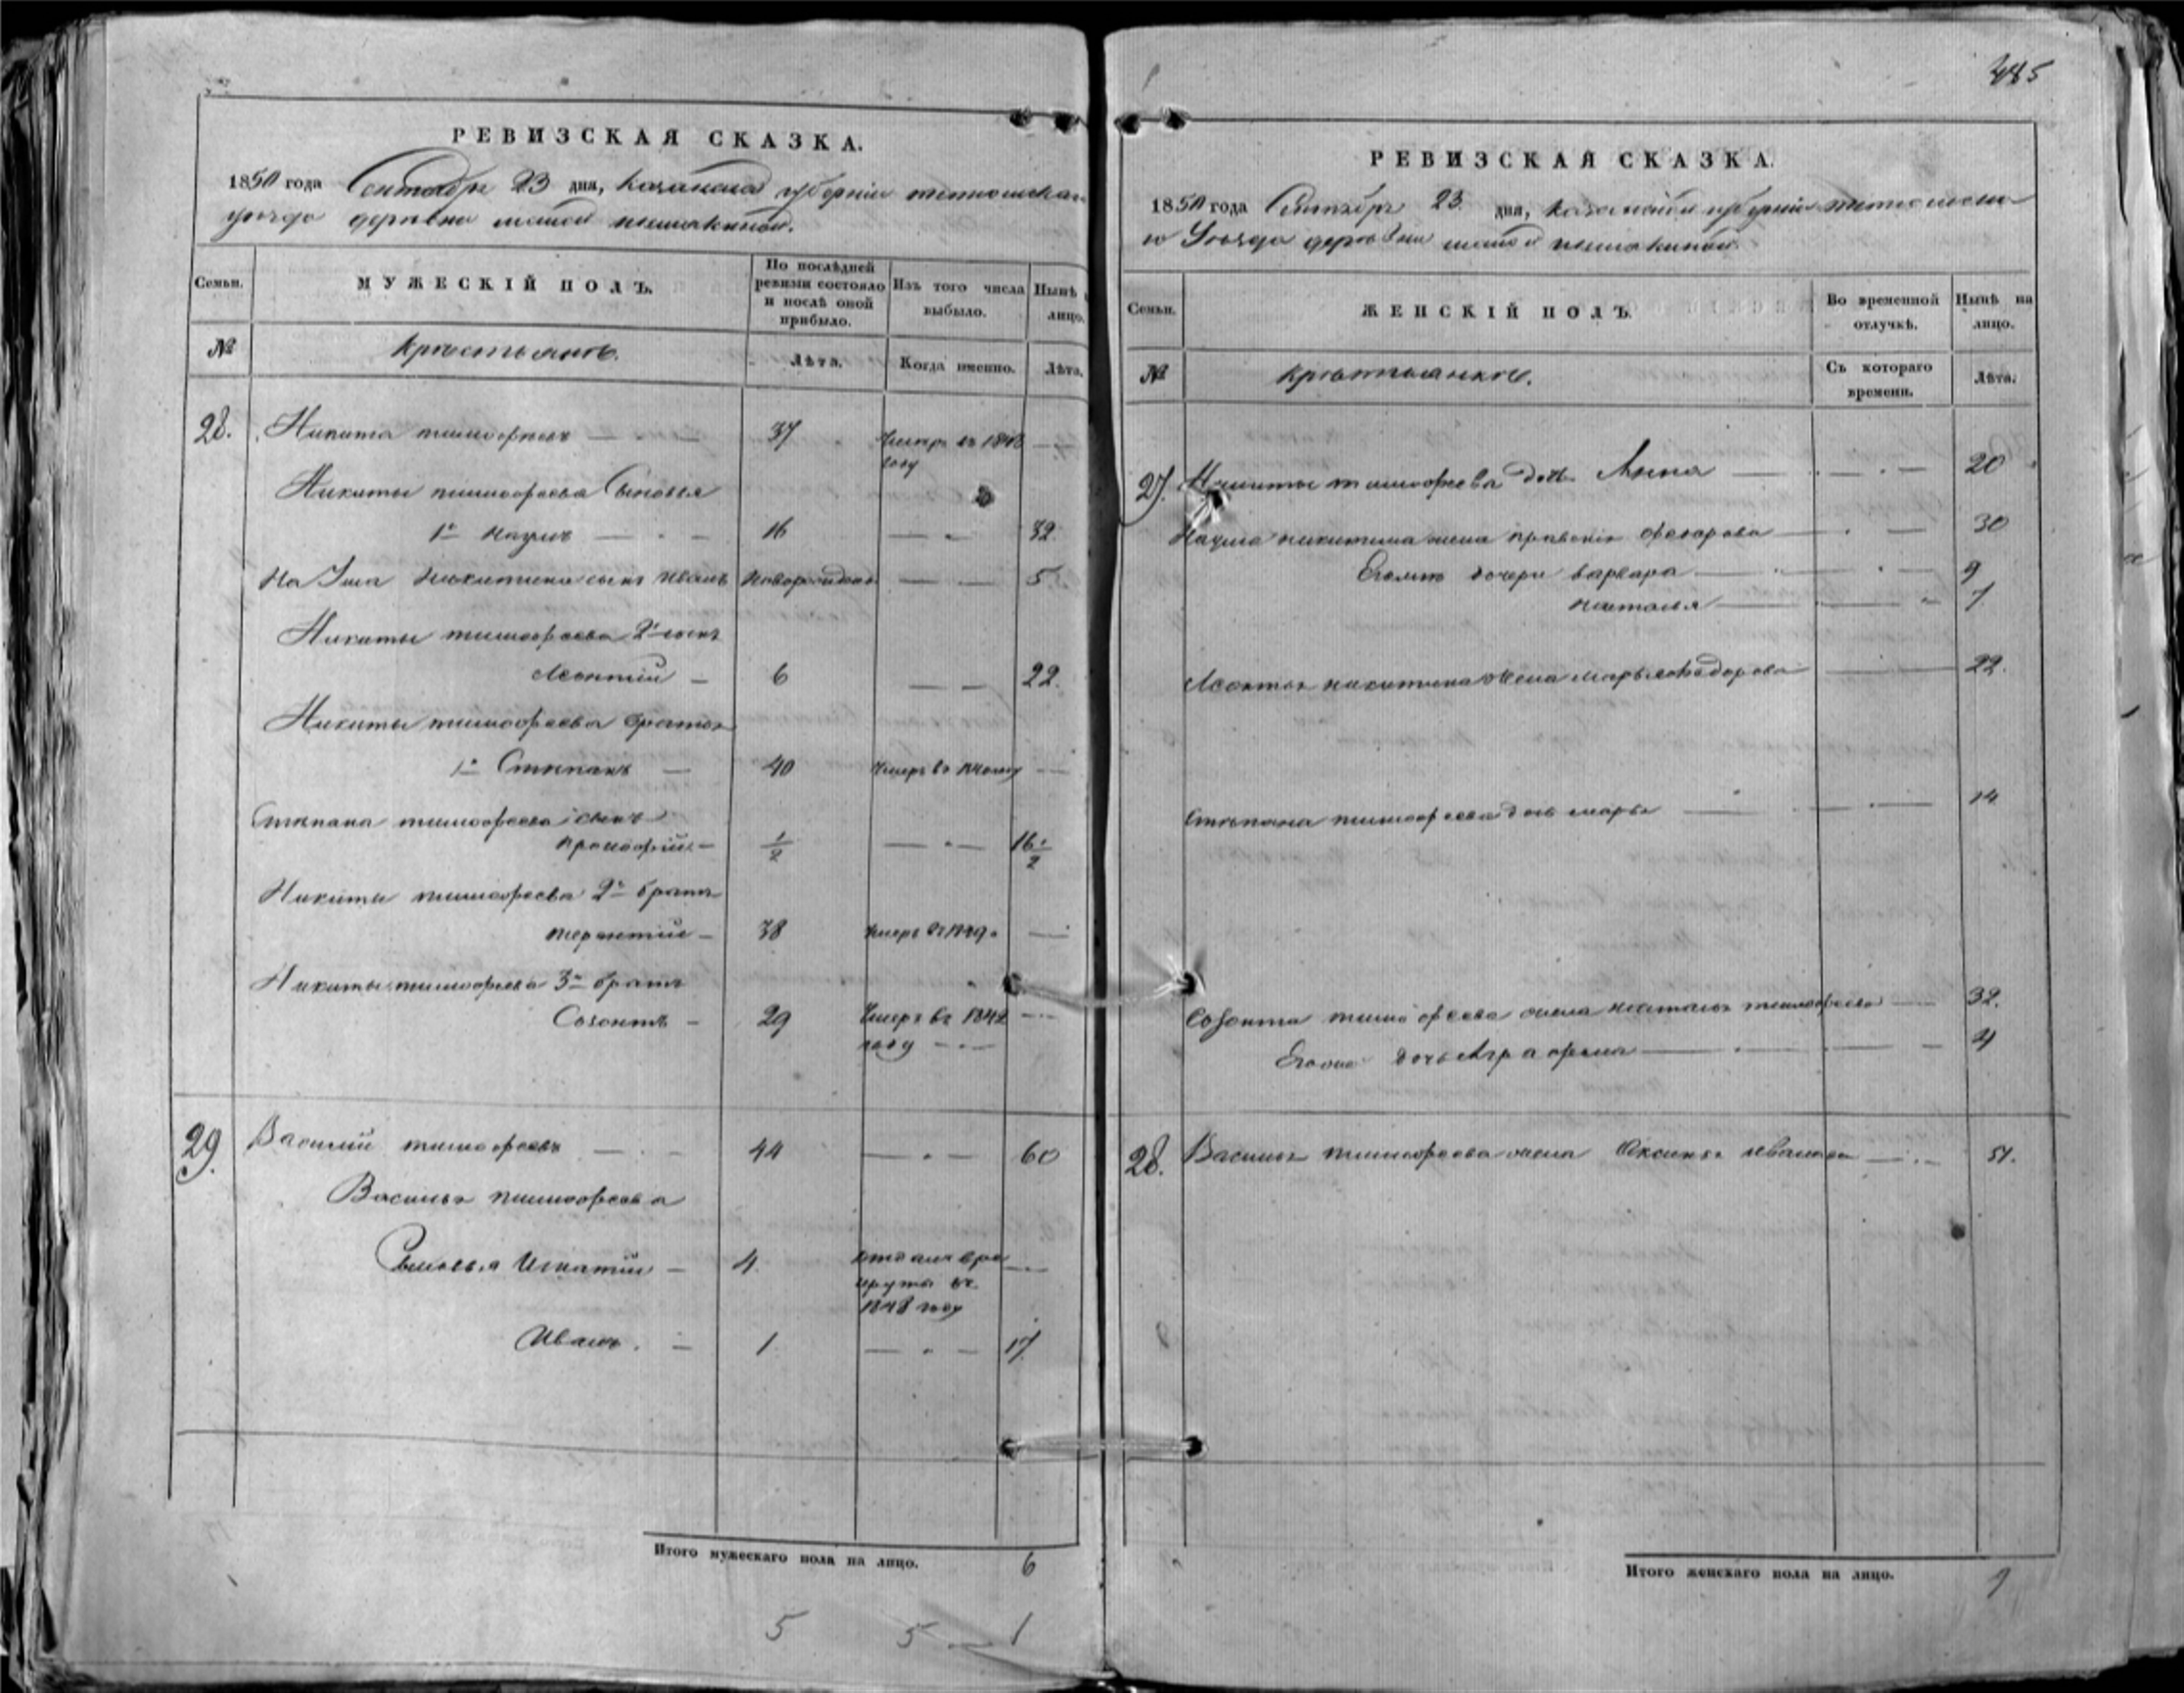 485
РЕВИЗСКАЯ СКАЗКА.
1850 года Сентября 23 дня, казанской губернии тетюшскаго
уезда деревни малой
Семьи.
МУЖЕСКІЙ ПОЛЪ.
По послѣдней ревизіи состояло и послѣ оной прибыло.
Изъ того числа выбыло.
Нынѣ на лицо.
№
крестьяне.
Лѣта.
Когда именно.
Лѣта.
28. Никита тимофеевъ — 37 умеръ въ году —
Никиты тимофеева Сыновья
1й наумъ — 16 — 32
Наума Никитина сынъ иванъ новорожденъ — 5
Никиты тимофеева 2й сынъ
Леонтий — 6 — 22.
Никиты тимофеева братья
1й Степанъ — 40 умеръ въ —
Степана тимофеева сынъ
прокофий — 1/2 — 16 1/2
Никиты тимофеева 2й братъ
терентий — 38 умеръ —
Никиты тимофеева 3й братъ
Созонтъ — 29 Умеръ въ 1842 году —
29. Василий тимофеевъ — 44 — 60
Василья тимофеева
Сыновья Игнатий — 4 отданъ в рекруты въ 1848 году —
Иванъ. — 1 — 17
Итого мужескаго пола на лицо. 6
5 5 — 1
РЕВИЗСКАЯ СКАЗКА.
1850 года Сентября 23 дня, казанской губернии тетюшска
го Уезда деревни малой
Семьи.
ЖЕНСКІЙ ПОЛЪ.
Во временной отлучкѣ.
Нынѣ на лицо.
№
крестьянки.
Съ котораго времени.
Лѣта.
27. Никиты тимофеева дочь Анна — 20
Наума никитина жена — 30
Его дочери варвара — 9
наталья — 7
Леонтья никитина жена марья федорова — 22.
Степана тимофеева дочь марья — 14
Созонта тимофеева жена наталья тимофеева — 32.
Его дочь Аграфена — 4
28. Василья тимофеева жена Аксинья иванова — 51.
Итого женскаго пола на лицо. 9